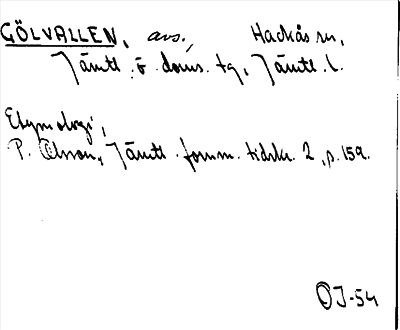 GÖLVALLEN, avs., Hackås sn,
Jämtl. ö. doms. tg, Jämtl. l.
Etymologi,
P. Olsson, Jämtl. fornm. tidskr. 2, p. 159.
OJ-54